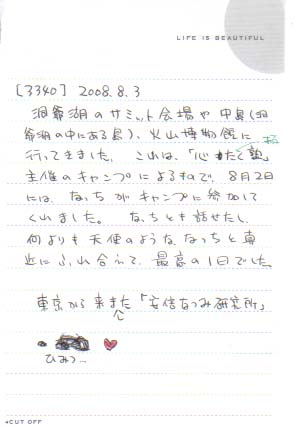 LIFE IS BEAUTIFUL
[3340] 2008.8.3
洞爺湖のサミット会場や中島(洞
爺湖の中にある島)、火山博物館に
行ってきました。これは、「心わたく塾」
主催のキャンプによるもので、8月2日
には、なっちがキャンプに参加して
くれました。なっちとも話せたし、
何よりも天使のような、なっちと真
近にふれ合えて、最高の1日でした。
東京から来た「安倍なつみ研究所」
ひみつ…
CUT OFF